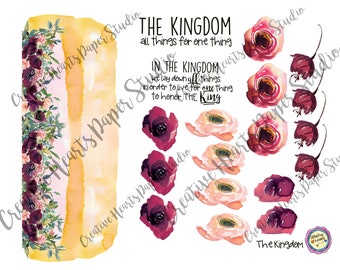 THE KINGDOM
all things for one thing
IN THE KINGDOM
we lay down all things
in order to live for one thing
to honor THE King
The Kingdom
Creative Hearts Paper Studio
Creative Hearts Paper Studio
Creative Hearts Paper Studio